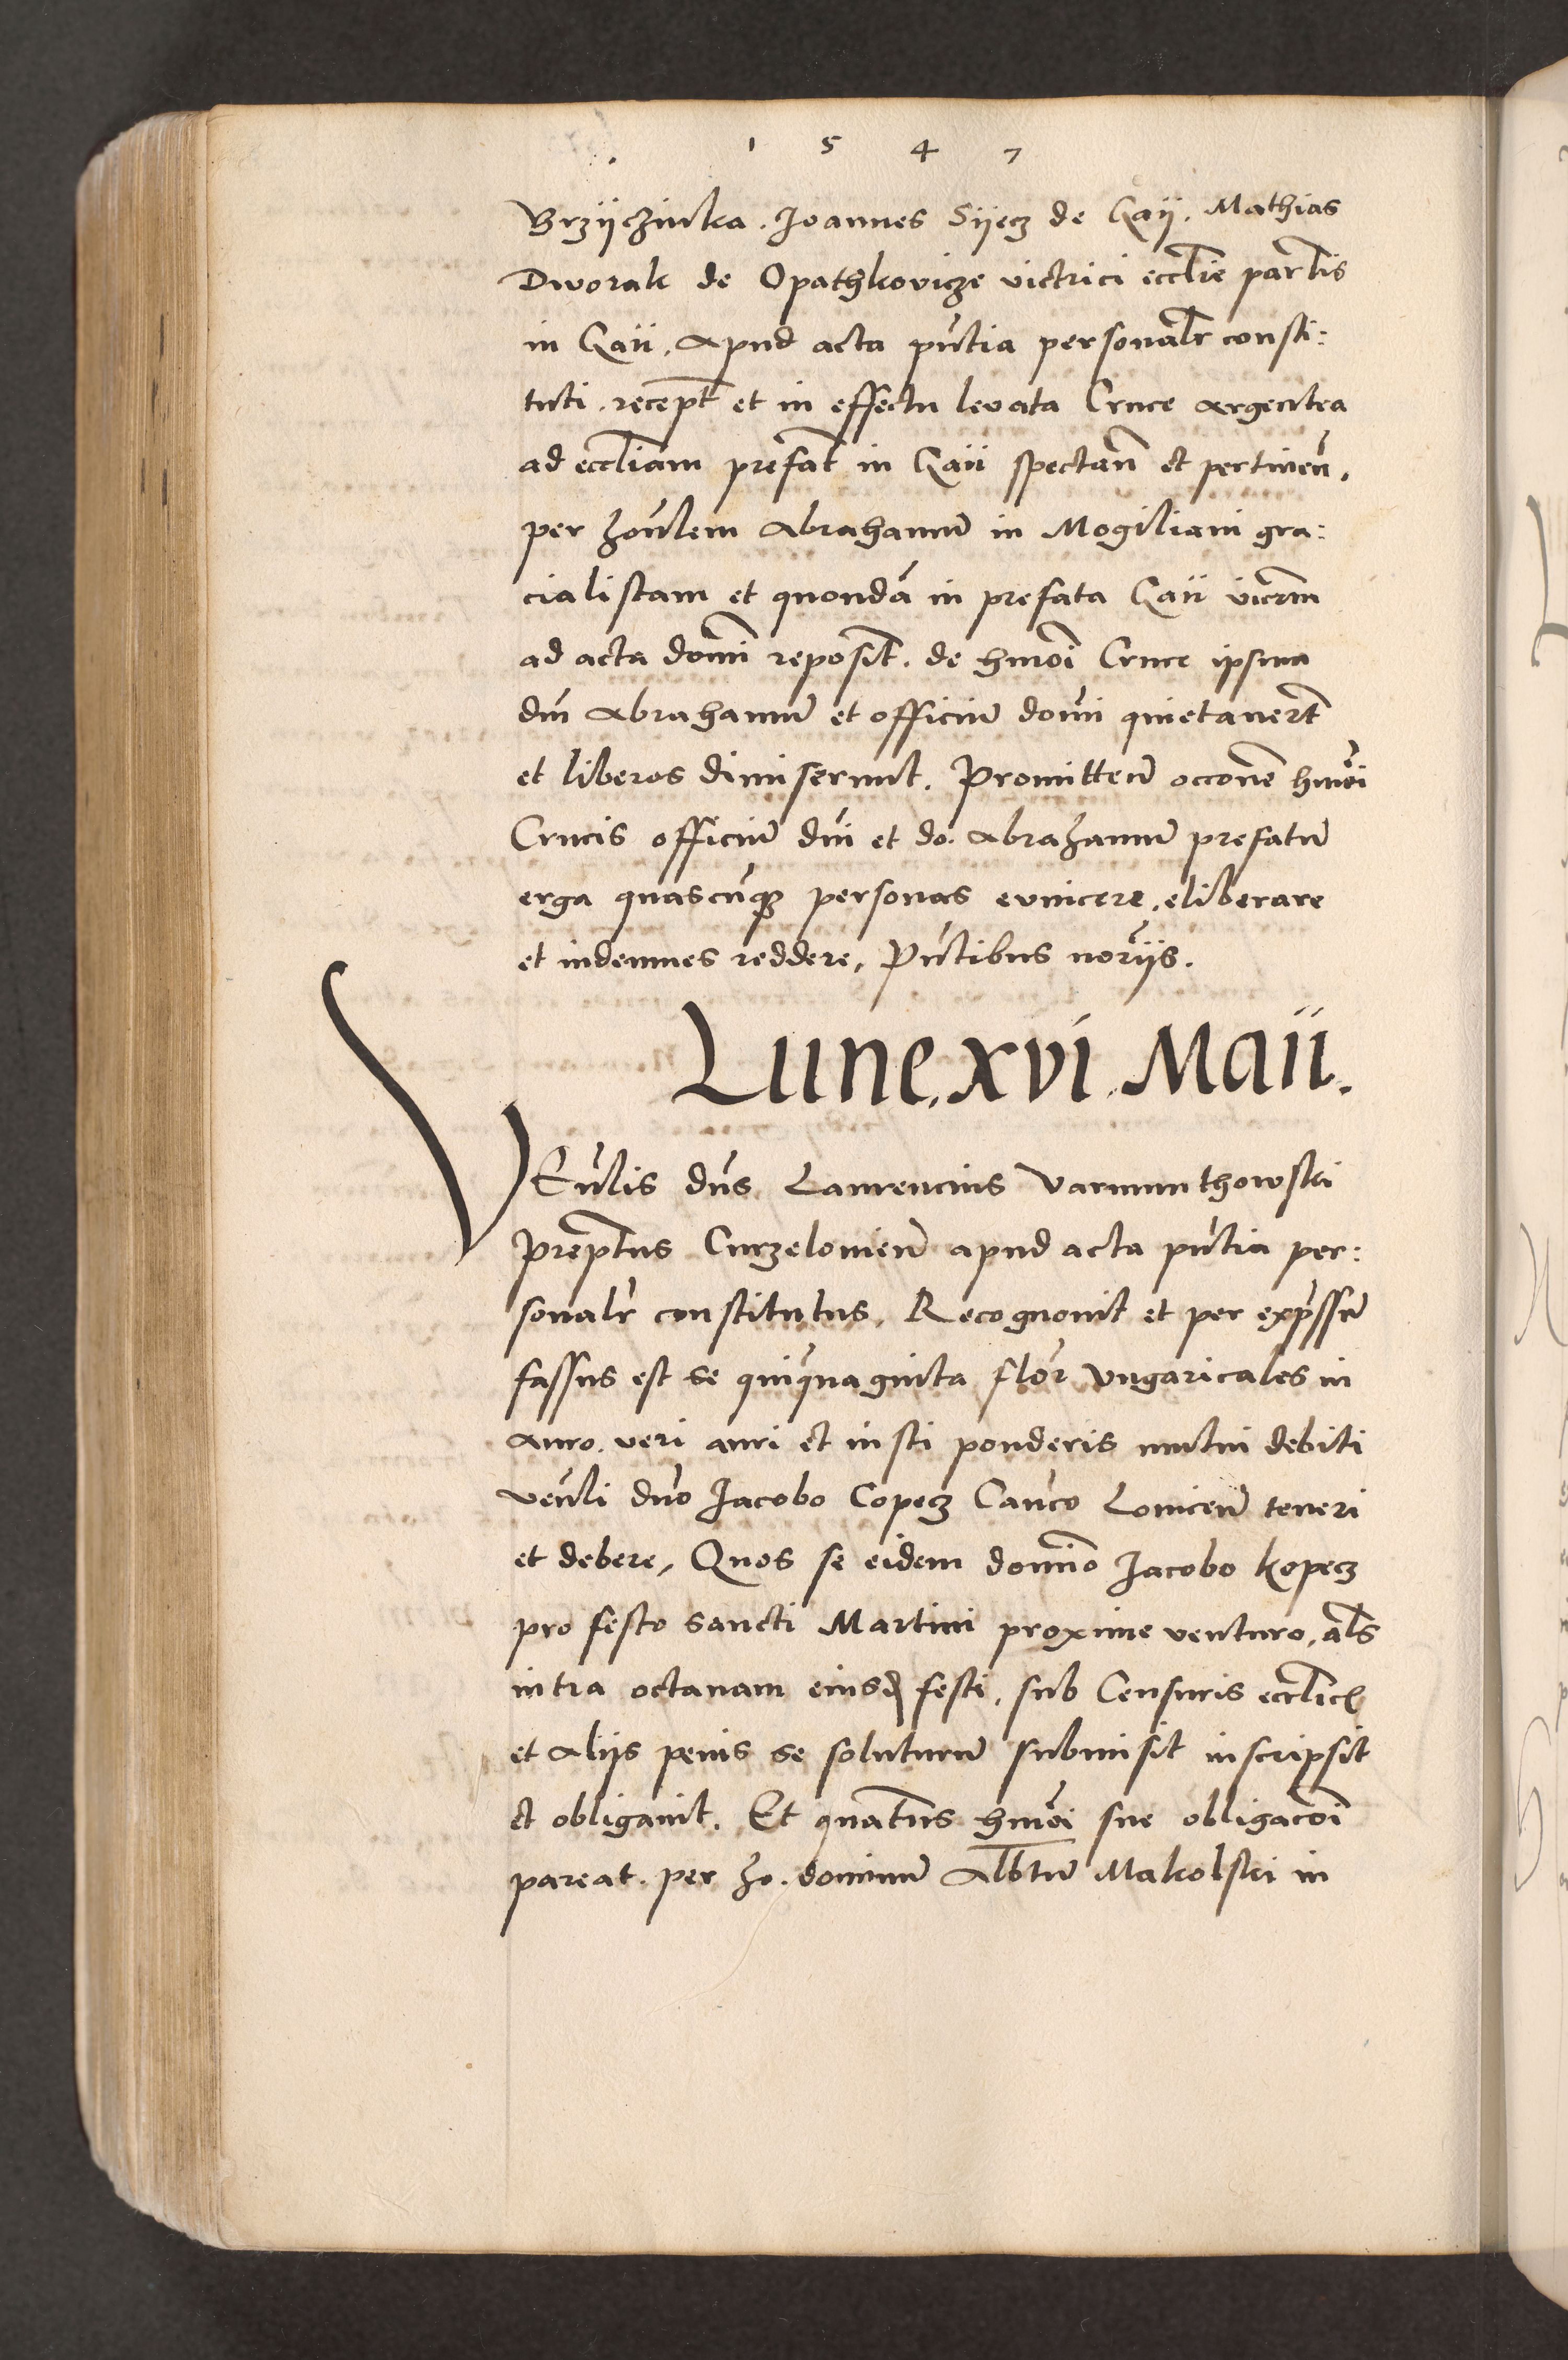 1 5 4 7
Brzÿczinka. Joannes Sÿecz de Gaÿ. Mathias
Dworak de Opathkovicze victrici eccl̄ie parl̄is
in Gaii. apud acta pn̄tia personal̄r consti:
tuti. recept̄ et in effectu levata Cruce argentea
ad eccl̄iam prefat̄ in Gaii spectan̄ et pertineñ.
per hon̄lem Abrahamū in Mogiliani gra:
cialistam et quondā in prefata Gaii vicrm̄
ad acta domī reposit̄. de hmōi Cruce ipsum
dn̄ Abrahamū et officiū domī quietauerūt
et liberos dimiserunt. Promitteñ occōne hmōi
Crucis officiū dn̄i et do. Abrahamū prefatū
erga quascūq₃ personas evincere, eliberare
et indemnes reddere, Pn̄tibus norÿs.
Lune. xvi. Maii.
VEn̄lis dn̄s Laurencius Varmunthowski
prept̄us Curzelovieñ apud acta pn̄tia per:
sonalr̄ constitutus, Recognouit et per exp̄ssū
fassus est se quīquaginta flor̄ vngaricales in
auro. veri auri et iusti ponderis mutui debiti
ven̄li dn̄o Jacobo Copecz Can̄co Lovicen̄ teneri
et debere, Quos se eidem domīo Jacobo kopecz
pro festo sancti Martini proxime venturo, al̄s
intra octauam eiusd̄ festi, sub Censuris eccl̄ic̄
et aliis penis se soluturū submisit inscripsit
et obligauit. Et quat̄nus hmōi sue obligacōi
pareat. per ho. dominū Alb̄tū Makolski in